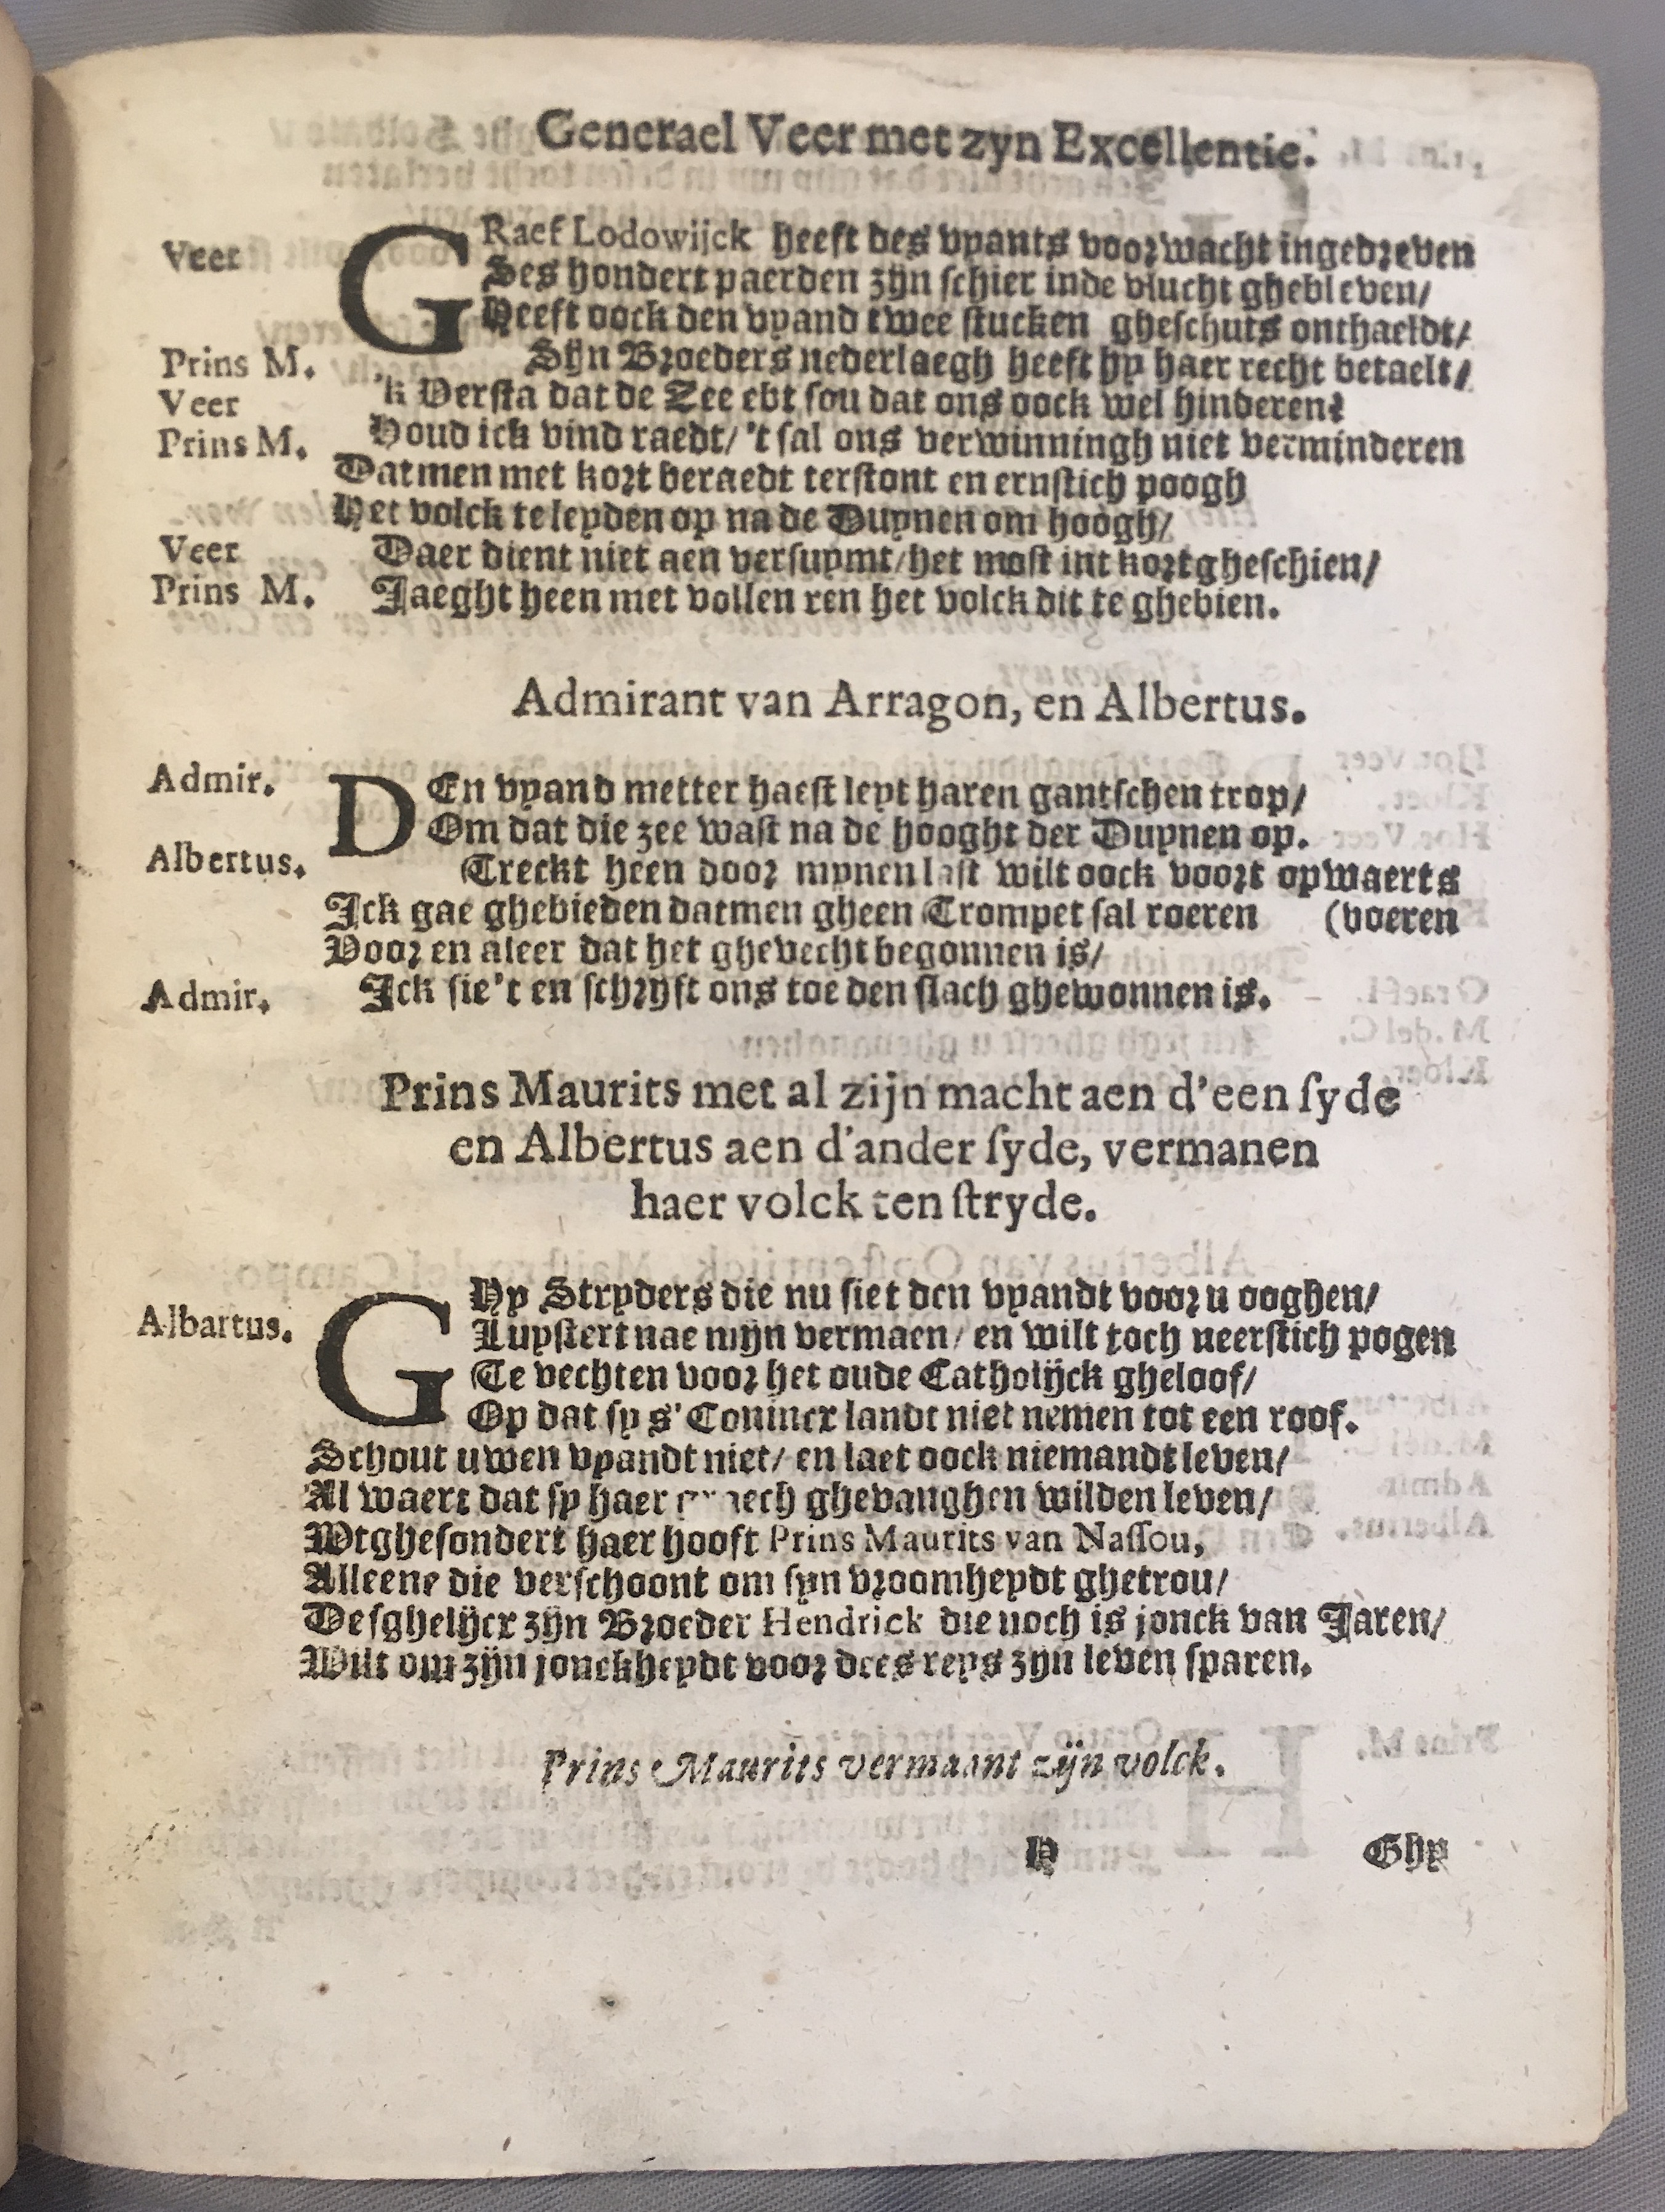 Generael Veer met zyn Excellentie.
Veer GRaef Lodowijck heeft des vyants voorwacht ingedreven
Ses hondert paerden zijn schier inde vlucht ghebleven/
Heeft oock den vyand twee stucken gheschuts onthaeldt/
Prins M. Sijn Broeders nederlaegh heeft hy haer recht betaelt/
Veer 'k Versta dat de Zee ebt sou dat ons oock wel hinderen?
Prins M. Houd ick vind raedt/ 't sal ons verwinningh niet verminderen
Datmen met kort beraedt terstont en ernstich poogh
Het volck te leyden op na de Duynen om hoogh/
Veer Daer dient niet aen versuymt/ het most int kort gheschien/
Prins M. Jaeght heen met vollen ren het volck dit te ghebien.
Admirant van Arragon, en Albertus.
Admir. DEn vyand metter haest leyt haren gantschen trop/
Om dat die zee wast na de hooght der Duynen op.
Albertus. Treckt heen door mynen last wilt oock voort opwaerts
Ick gae ghebieden datmen gheen Trompet sal roeren (voeren
Voor en aleer dat het ghevecht begonnen is/
Admir. Ick sie't en schryft ons toe den slach ghewonnen is.
Prins Maurits met al zijn macht aen d'een syde
en Albertus aen d'ander syde, vermanen
haer volck ten stryde.
Albartus. GHy Stryders die nu siet den vyandt voor u ooghen/
Luystert nae mijn vermaen/ en wilt toch neerstich pogen
Te vechten voor het oude Catholijck gheloof/
Op dat sy s' Conincx landt niet nemen tot een roof.
Schout uwen vyandt niet/ en laet oock niemandt leven/
Al waert dat sy haer ghevanghen wilden leven/
Wtghesondert haer hooft Prins Maurits van Nassou,
Alleene die verschoont om syn vroomheydt ghetrou/
Desghelijcx zijn Broeder Hendrick die noch is jonck van Jaren/
Wilt om zijn jonckheydt voor dees reys zyn leven sparen.
Prins Maurits vermaant zijn volck.
H Ghy